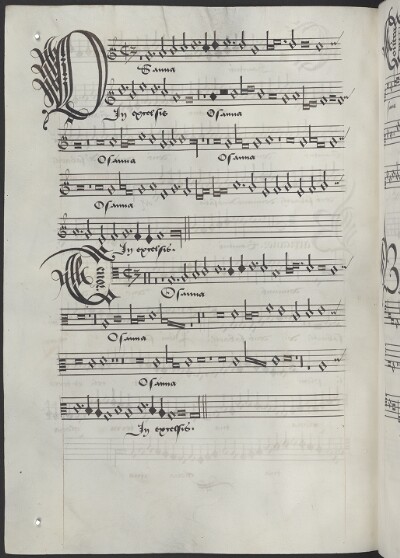 Osanna
In excelsis Osanna
Osanna Osanna
Osanna
In excelsis.
Tenor.
Osanna
Osanna
Osanna
In excelsis.